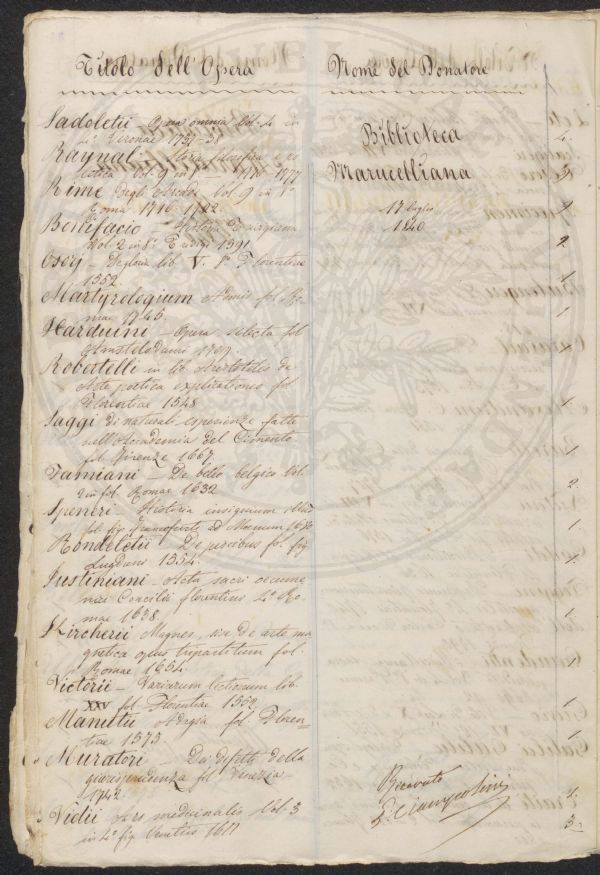 Titolo dell'Opera
Nome del Donatore
Sadoletii - Opera omnia Vol. 4 in
4° Veronae 1737-38
4.
Raynal - Storia filosofica e po
litica Vol. 9 in 8° - 1776-1777
9.
Rime degli Arcadi Vol. 9 in 8°
Roma 1716-1722
9
Bonifacio - Historia Trivigiana
Vol. 2 in 8° 1591
2.
Osorj - De gloria lib. V. 8° Florentiae
1552
1
Martyrologium Adonis fol. Ro-
mae 1745
1
Harduini - Opera selecta fol
Amstelodami 1709
1
Robertelli in lib Aristotelis de
Arte poetica explicationes fol.
Florentiae 1548
1
Saggi di naturali esperienze fatte
nell'Accademia del Cimento
fol. Firenze 1667
1
Famiani - De bello belgico Vol.
2 in fol. Romae 1632
2
Speneri - Historia insignium
fol. fig. Francofurti ad Moenum
1
Rondeletii - De piscibus fol. fig
Lugduni 1554
1
Justiniani - Acta sacri oecume
nici Concilii florentini 4° Ro
mae 1638
1
Kircherii Magnes, sive de arte ma
gnetica opus tripartitum fol.
Romae 1654
1
Victorii - Variarum lectionum lib.
XXV fol. Florentiae 1552
1
Manutii Adagia fol. Floren-
tiae 1575
1
Muratori - Dei difetti della
giurisprudenza fol Venezia
1742
1
Vidii Ars medicinalis Vol 3
in 4° fig. Venetiis 1611
3
Biblioteca
Marucelliana
17 luglio
1840
Ricevuto